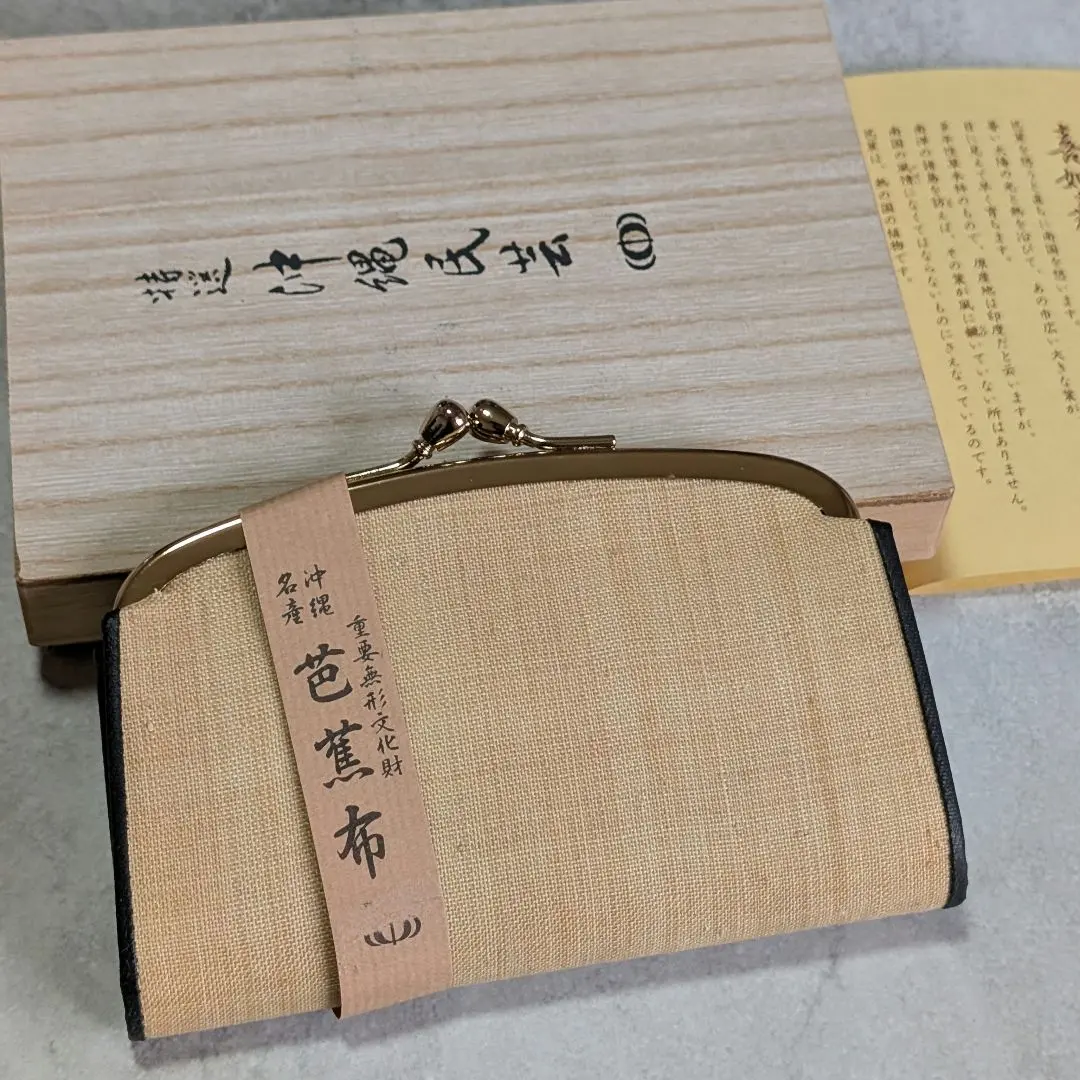 沖縄民芸
沖縄
名産
重要無形文化財
芭蕉布
喜如
芭蕉を想うと直ちに南国を想います。
暑い太陽の光と熱を浴びて、あの巾広い大きな葉が
目に見えて早く育ちます。
多年性草本科のもので、原産地は印度だと云いますが、
南洋の諸島を訪えば、その葉が風に飜いていない所はありません。
南国の風情になくてはならないものにさえなっているのです。
芭蕉は、熱の国の植物です。